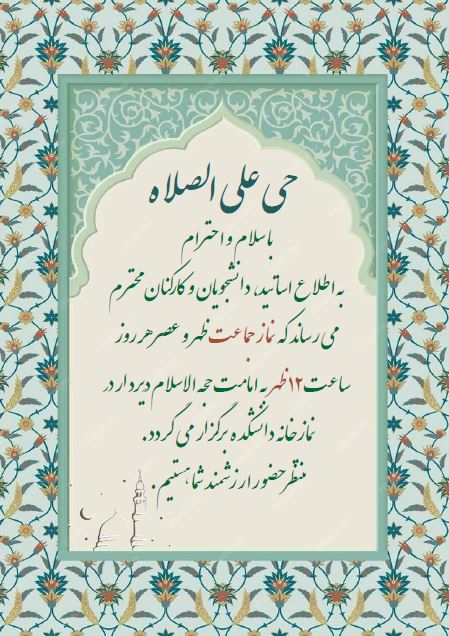 حی علی الصلاه
با سلام و احترام
به اطلاع اساتید، دانشجویان و کارکنان محترم
می رساند که نماز جماعت ظهر و عصر هر روز
ساعت ۱۲ ظهر به امامت حجه الاسلام دیردار در
نمازخانه دانشکده برگزار می گردد.
منتظر حضور ارزشمند شما هستیم.